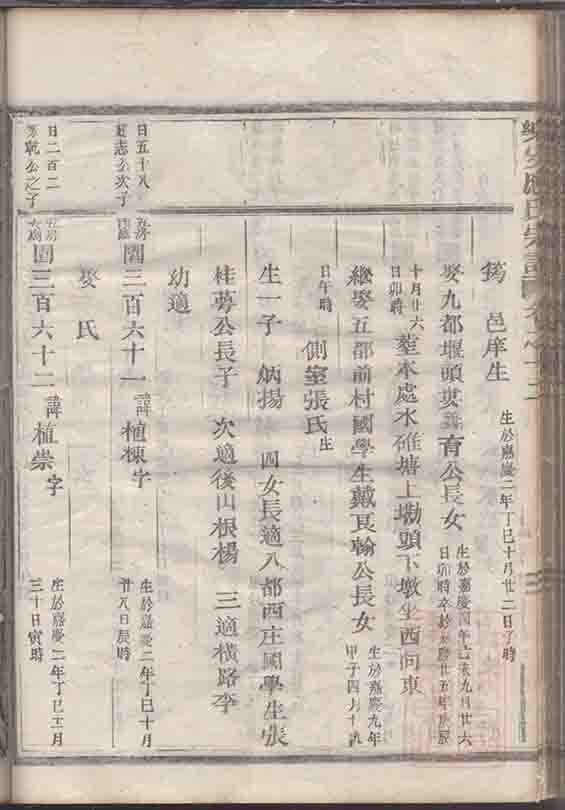 筠 邑庠生 生於嘉慶二年丁巳十月廿二日子時
娶九都堰頭婁 育公長女 生於嘉慶四年 九月廿六日卯時卒於 廿五年庚辰
十月廿六日卯時 塟本處水碓塘上塝頭下墩坐西向東
繼娶五都前村國學生戴 翰公長女 生於嘉慶九年甲子四月十
日午時 側室張氏生
生一子 炳揚 四女長適八都西庄國學生張
桂蕚公長子 次適後山根楊 三適橫路李
幼適
日五十八 志公次子
五房 闈三百六十一 諱植棟字 生於嘉慶二年丁巳十月廿八日辰時
娶氏
日二百二 乾公之子
五房 圍三百六十二 諱植崇字 生於嘉慶二年丁巳十一月三十日寅時